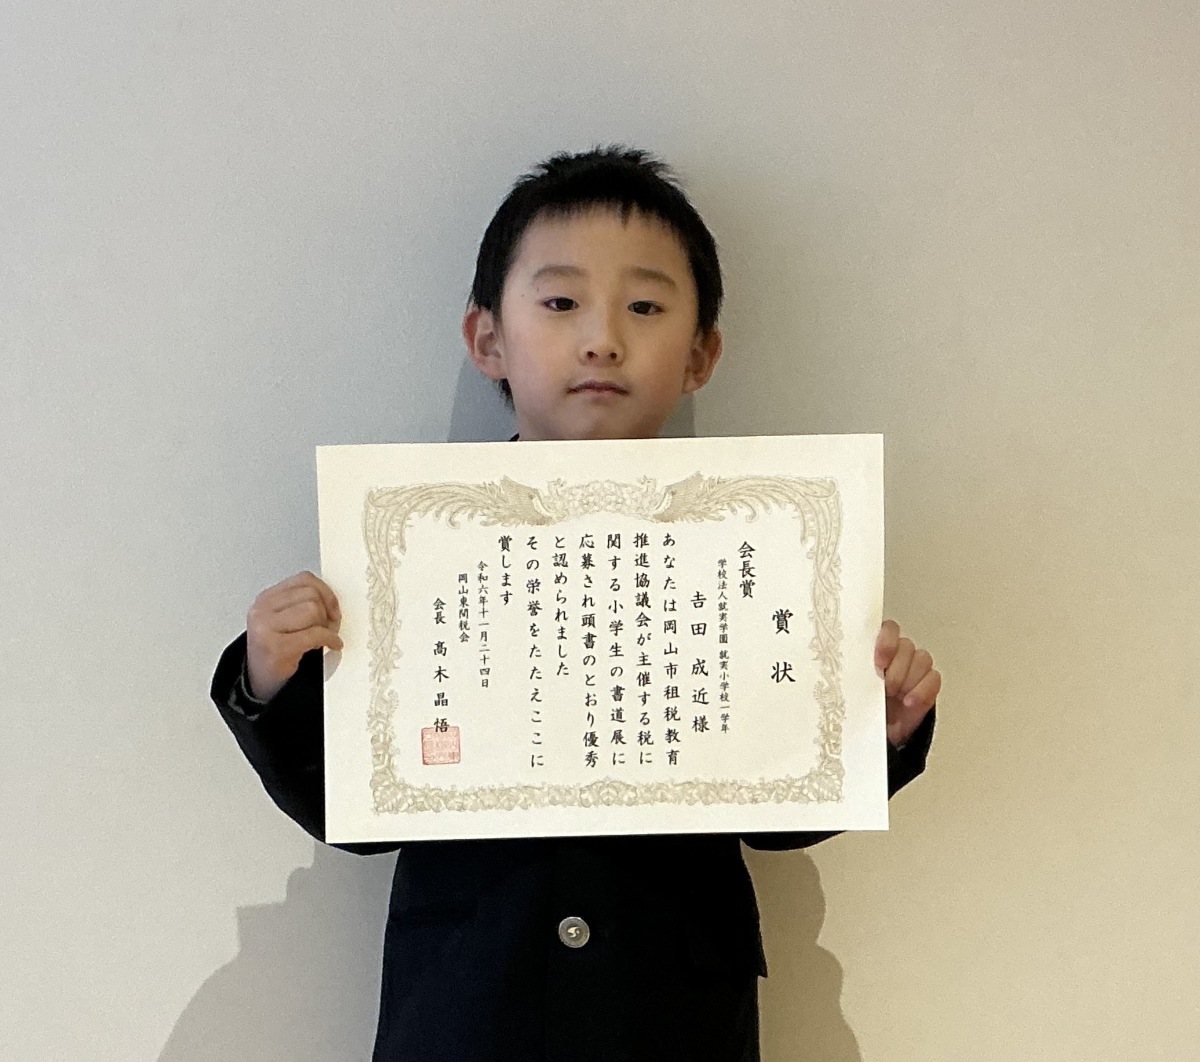 賞状
会長賞
学校法人就実学園 就実小学校一学年
吉田成近様
あなたは岡山市租税教育
推進協議会が主催する税に
関する小学生の書道展に
応募され頭書のとおり優秀
と認められました
その栄誉をたたえここに
賞します
令和六年十一月二十四日
岡山東間税会
会長 高木晶悟